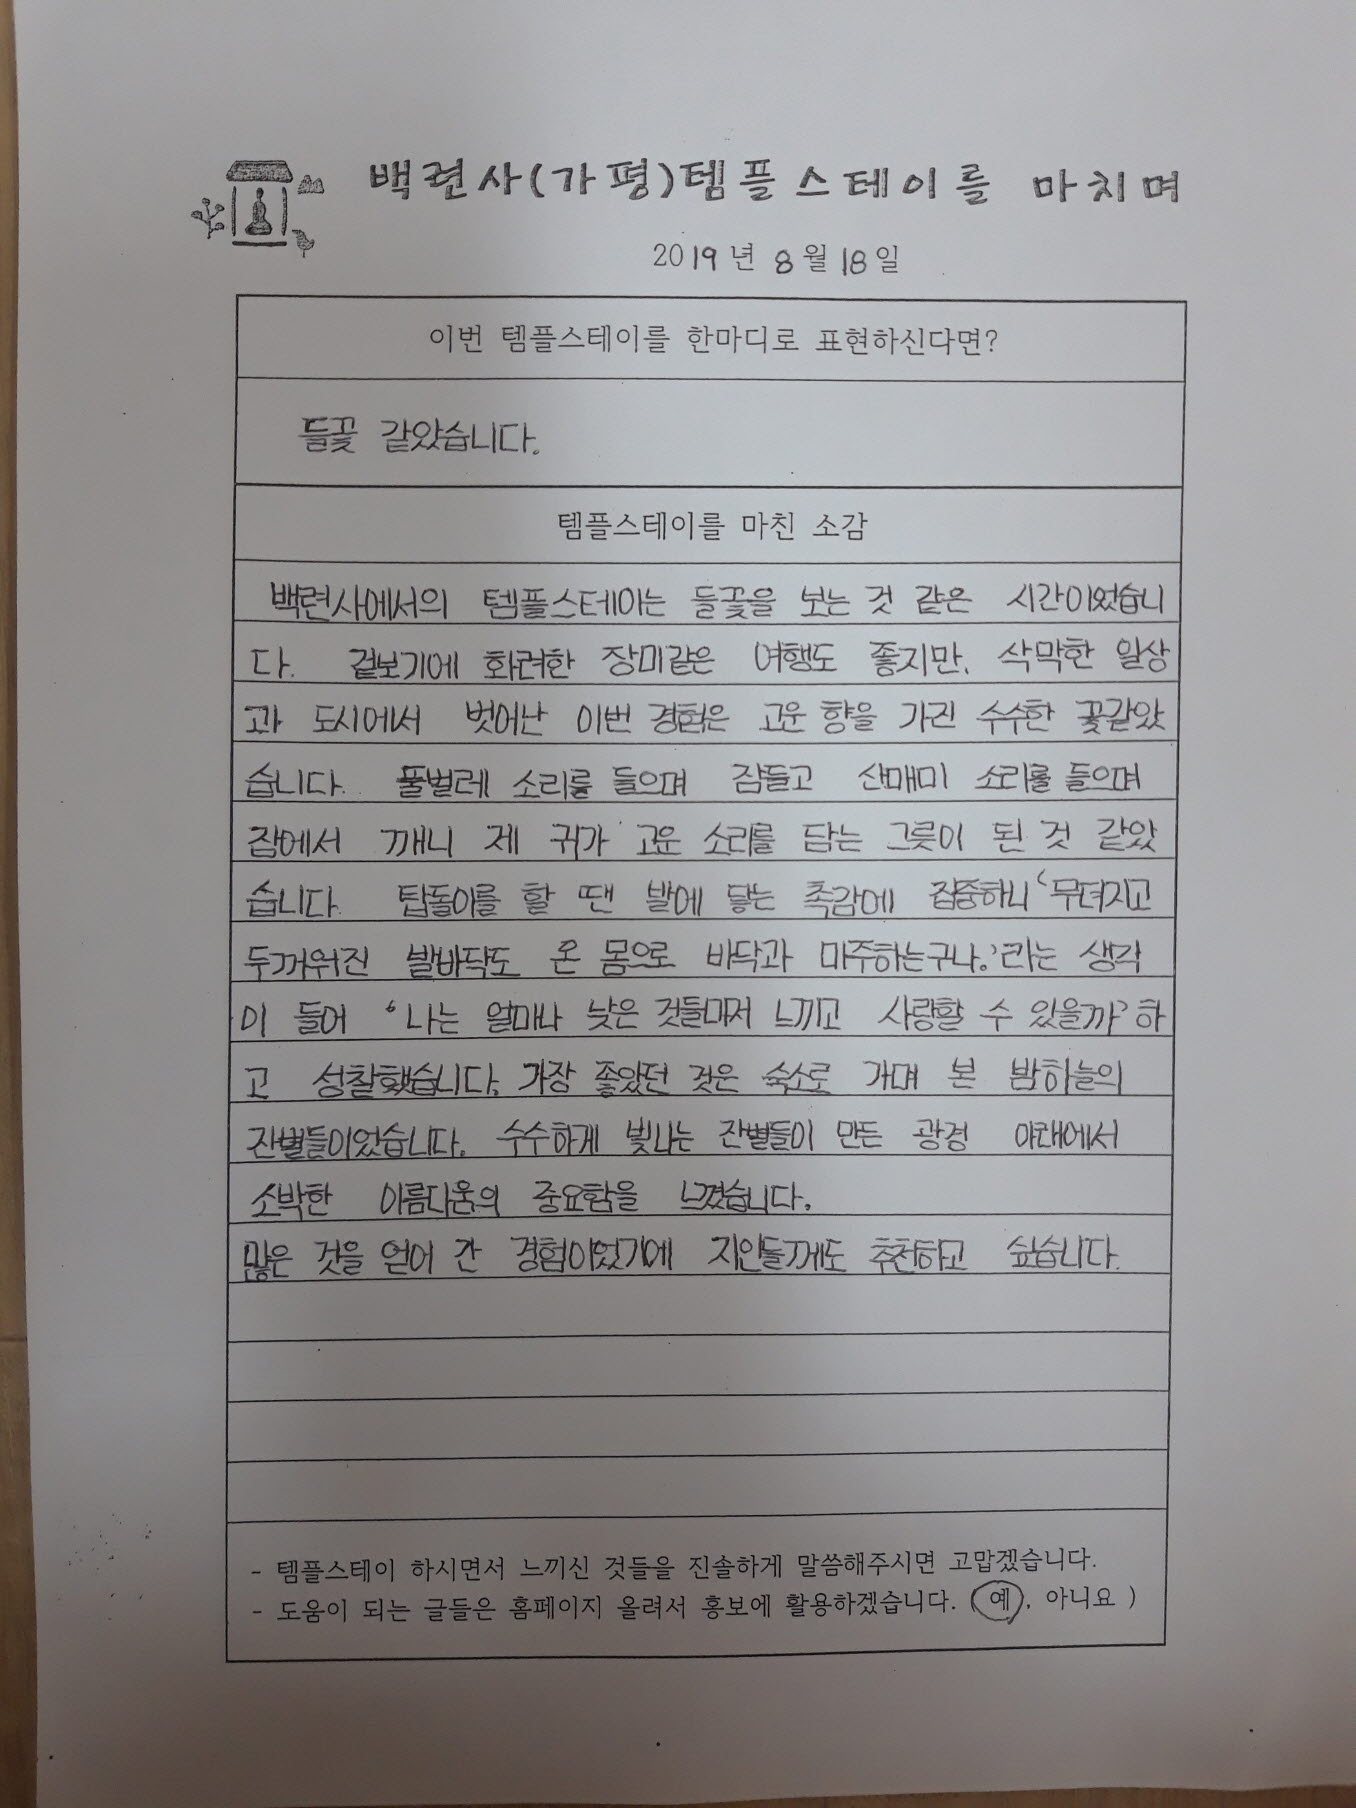 백련사(가평)템플스테이를 마치며
2019년 8월 18일
이번 템플스테이를 한마디로 표현하신다면?
들꽃 같았습니다.
템플스테이를 마친 소감
백련사에서의 템플스테이는 들꽃을 보는 것 같은 시간이었습니
다. 겉보기에 화려한 장미같은 여행도 좋지만, 삭막한 일상
과 도시에서 벗어난 이번 경험은 고운 향을 가진 수수한 꽃같았
습니다. 풀벌레 소리를 들으며 잠들고 산매미 소리를 들으며
잠에서 깨니 제 귀가 고운 소리를 담는 그릇이 된 것 같았
습니다. 탑돌이를 할 땐 발에 닿는 촉감에 집중하니 '무뎌지고
두꺼워진 발바닥도 온 몸으로 바닥과 마주하는구나.'라는 생각
이 들어 '나는 얼마나 낮은 것들마저 느끼고 사랑할 수 있을까' 하
고 성찰했습니다. 가장 좋았던 것은 숙소로 가며 본 밤하늘의
잔별들이었습니다. 수수하게 빛나는 잔별들이 만든 광경 아래에서
소박한 아름다움의 중요함을 느꼈습니다.
많은 것을 얻어 간 경험이었기에 지인들께도 추천하고 싶습니다.
- 템플스테이 하시면서 느끼신 것들을 진솔하게 말씀해주시면 고맙겠습니다.
- 도움이 되는 글들은 홈페이지 올려서 홍보에 활용하겠습니다. (예, 아니요 )